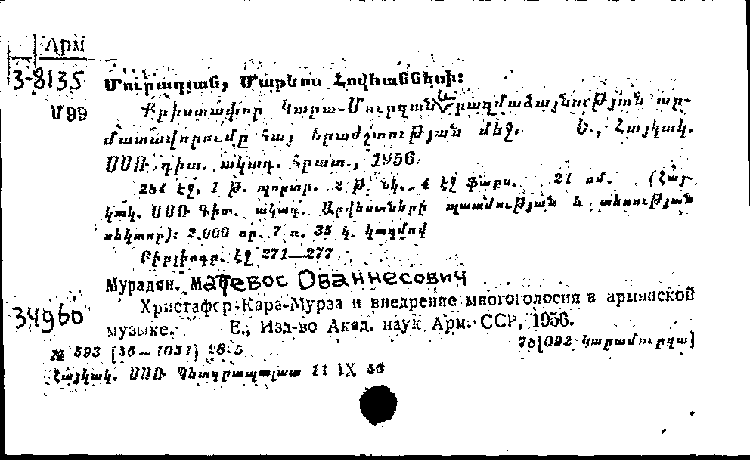 Арм
3-8135
Մուրադյան, Մաթևոս Հովհաննեսի:
Մ99
Քրիստափոր Կարա-Մուրզան և բազմաձայնության ար-
մատավորումը հայ երաժշտության մեջ. Ե., Հայկակ.
ՍՍՌ գիտ. ակադ. հրատ., 1956.
էջ, 1 թ. պորտր. 21 սմ. (Հայ-
կակ. ՍՍՌ Գիտ. ակադ. Արվեստների պատմության և տեսության
սեկտոր): 2.000 օր. 7 ռ. 35 կ. կազմով
Բիբլիոգր. էջ 271—277
Мурадян. Матевос Ованнесович
Христафор Кара-Мурза и внедрение многоголосия в армянской
34960
музыке. Е., Изд-во Акад. наук Арм. ССР, 1956.
№ 593 78[092 Կարամուրզա]
Հայկակ. ՍՍՌ Պետգրապալատ 11 IX 56